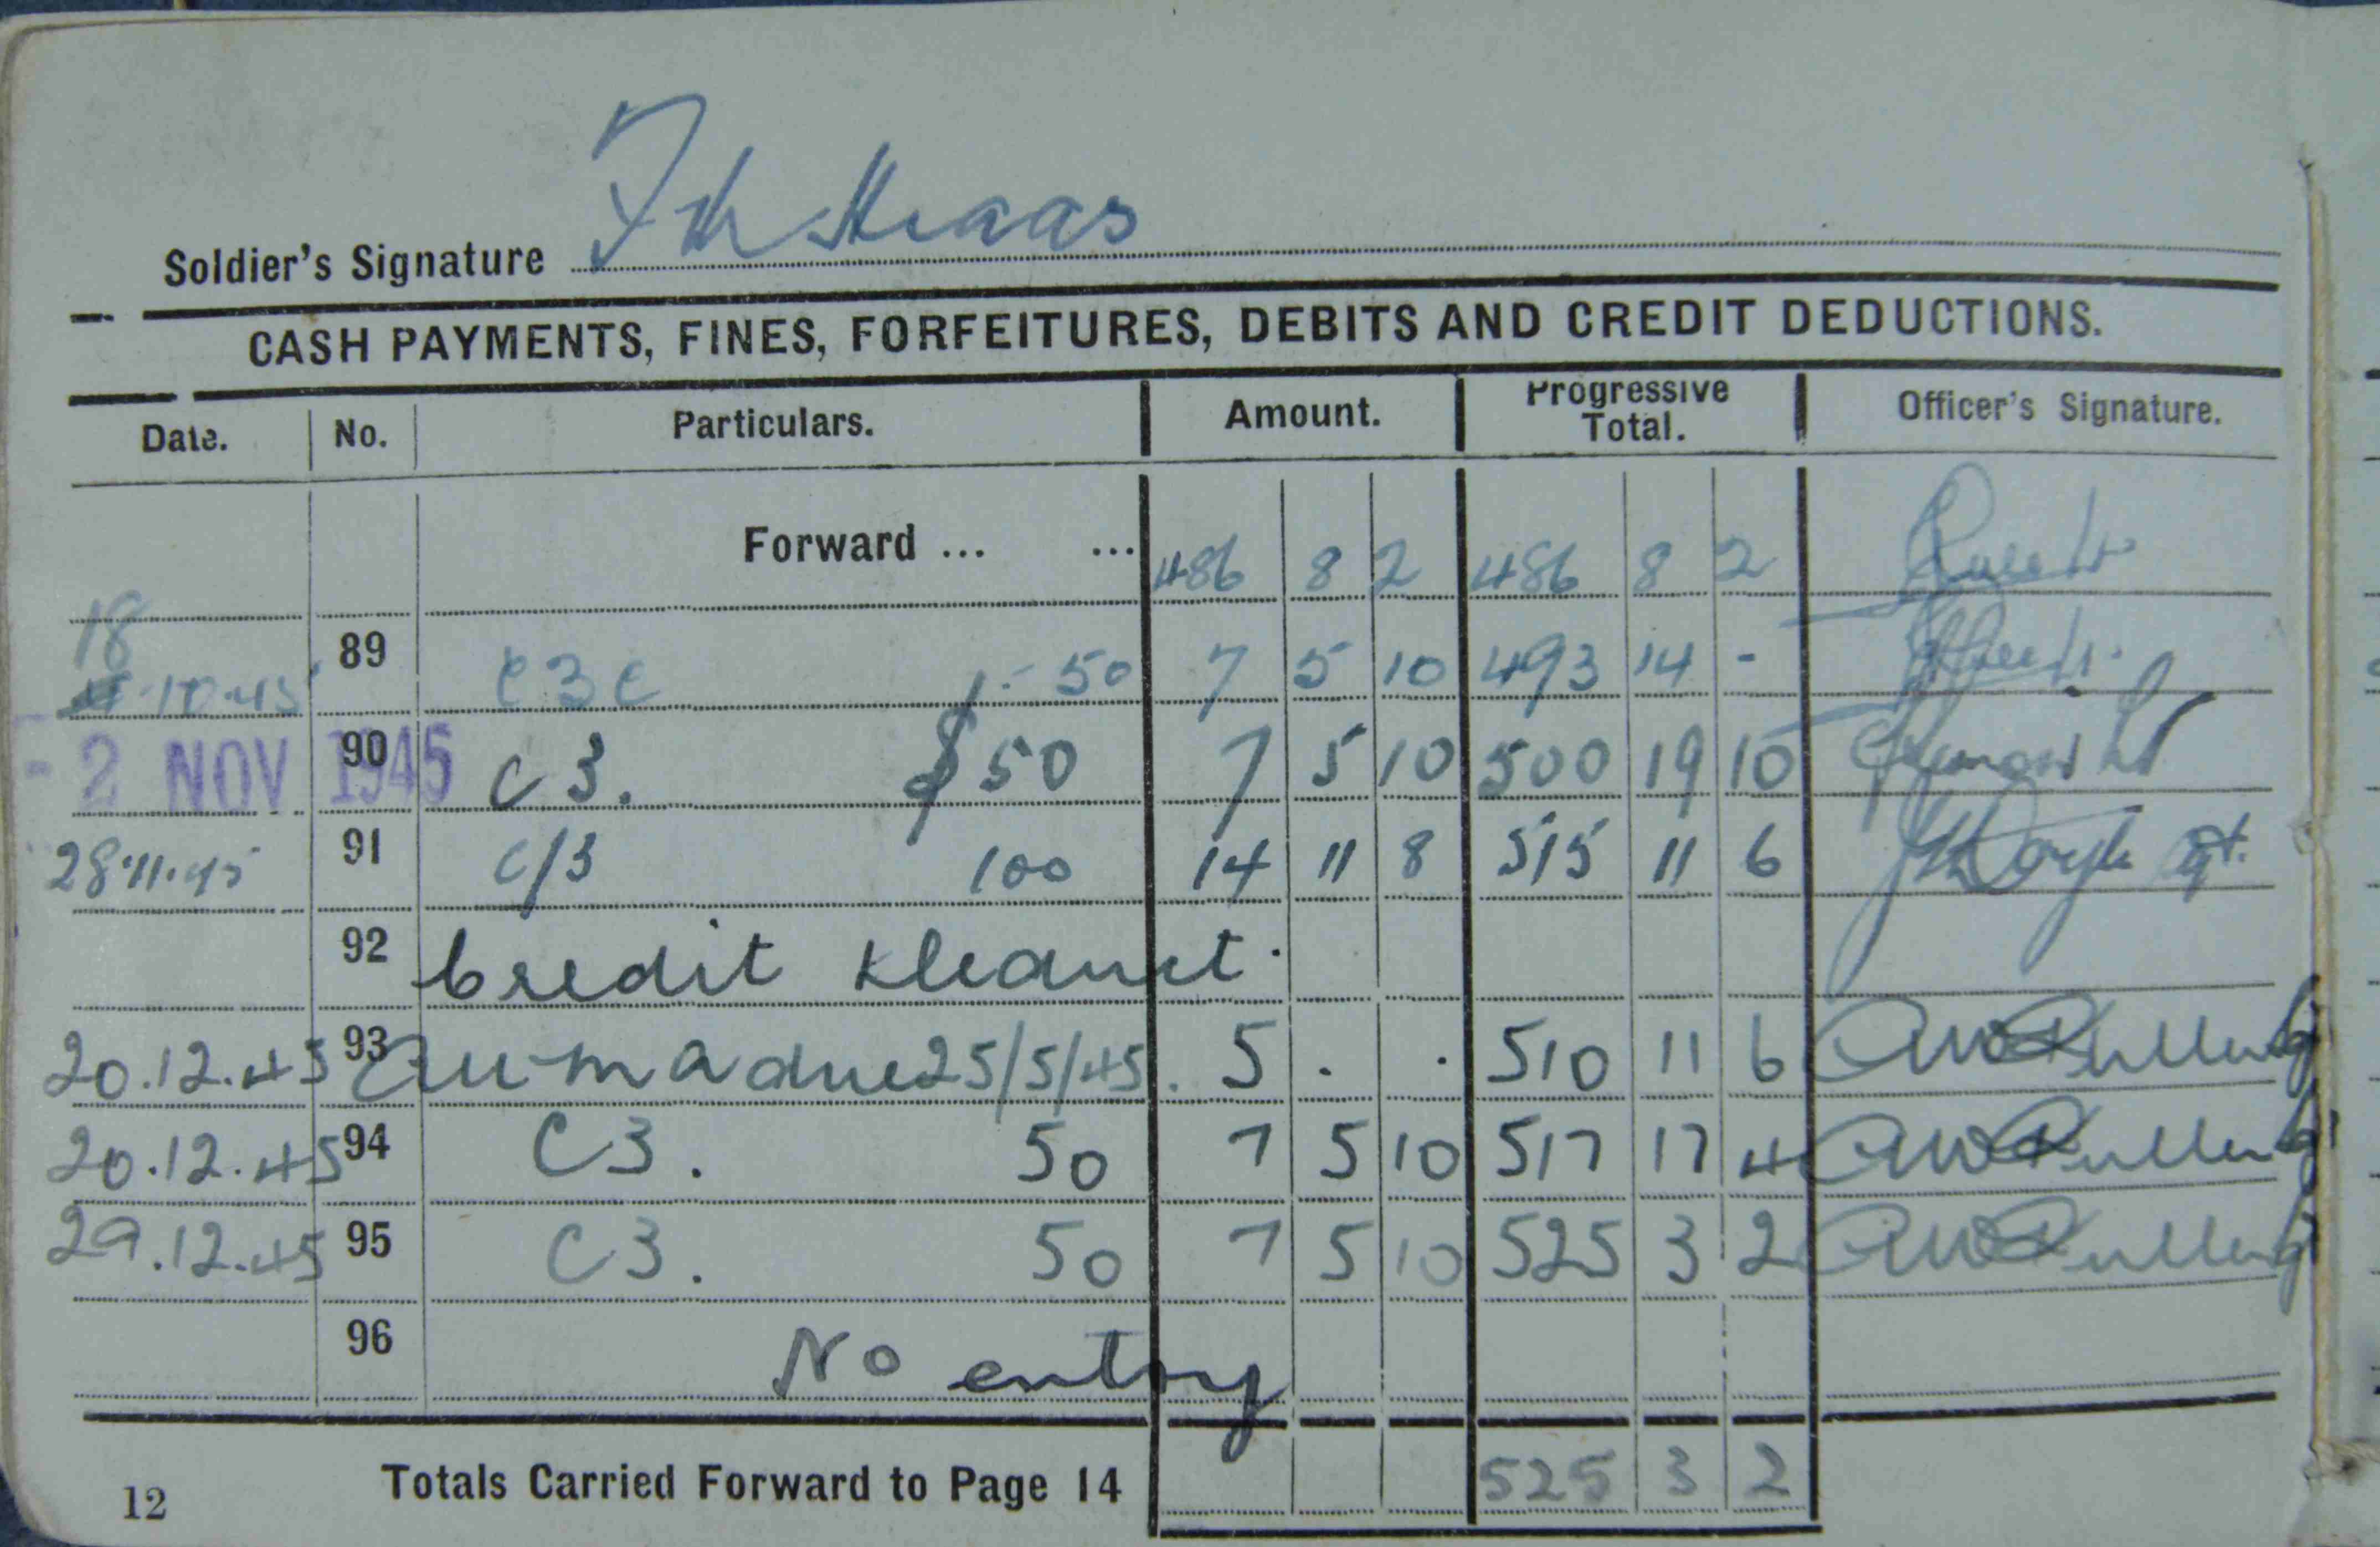 Soldier's Signature
CASH PAYMENTS, FINES, FORFEITURES, DEBITS AND CREDIT DEDUCTIONS.
Date. No. Particulars. Amount. Progressive Total. Officer's Signature.
Forward ... ... 486 8 2 486 8 2
18
10.45 89 C3C 50 7 5 10 493 14 -
- 2 NOV 1945 90 C3. $50 7 5 10 500 19 10
28.11.45 91 C/3 100 14 11 8 515 11 6
92 Credit
20.12.45 93 due 25/5/45. 5 . . 510 11 6
20.12.45 94 C3. 50 7 5 10 517 17 4
29.12.45 95 C3. 50 7 5 10 525 3 2
96 No entry
Totals Carried Forward to Page 14 525 3 2
12